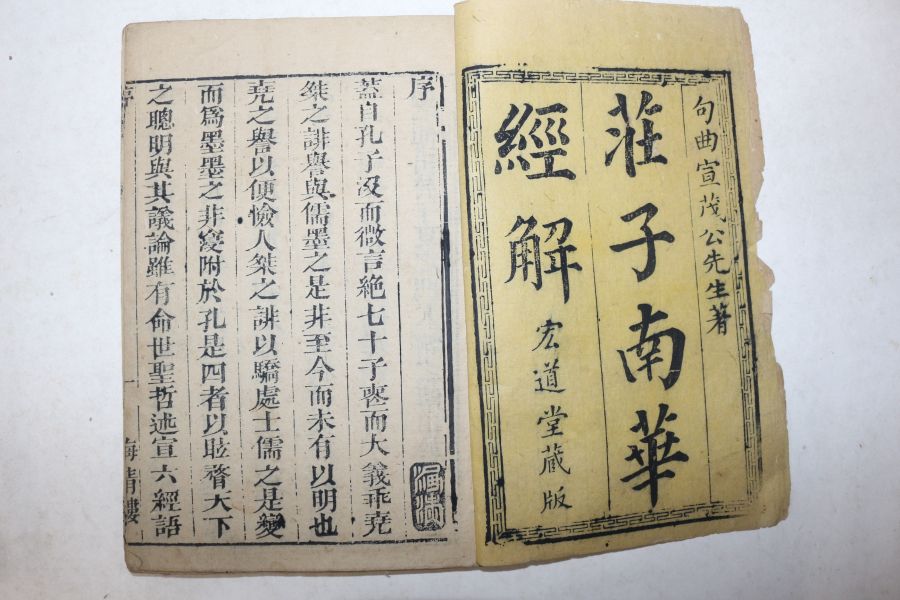 句曲宣茂公先生著
莊子南華
經解
宏道堂藏版
序
蓋自孔子沒而微言絶七十子喪而大義乖堯
桀之誹譽與儒墨之是非至今而未有以明也
堯之譽以便憸人桀之誹以驕處士儒之是變
而爲墨墨之非寖附於孔是四者以眩瞀天下
之聰明與其議論雖有命世聖哲述宣六經語
序
一
海清樓